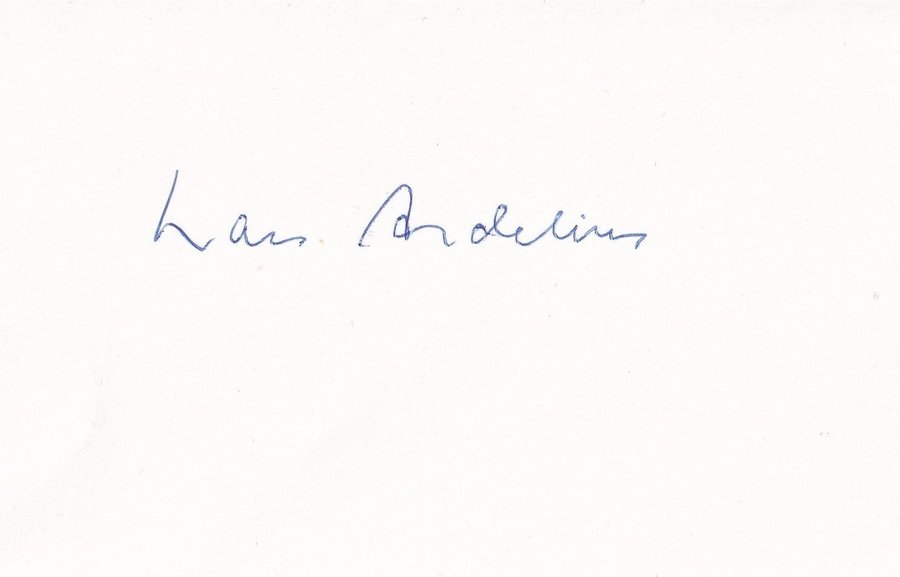 Lars Ardelius